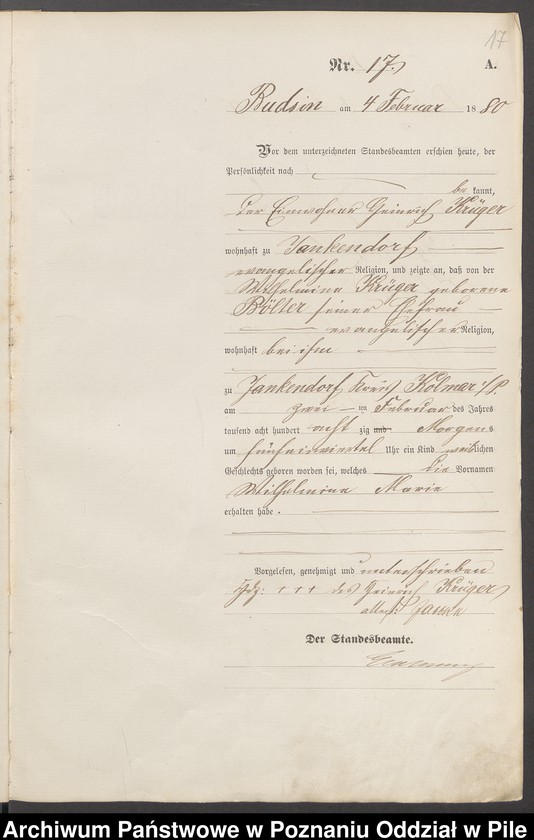 17
Nr. 17
A.
Budsin am 4 Februar 1880
Vor dem unterzeichneten Standesbeamten erschien heute, der
Persönlichkeit nach
bekannt,
der Einwohner Heinrich Krüger
wohnhaft zu Jankendorf
evangelischer Religion, und zeigte an, daß von der
Wilhelmine Krüger geborene
Bölter seiner Ehefrau
evangelischer Religion,
wohnhaft bei ihm
zu Jankendorf Kreis Kolmar i/P.
am zwei ten Februar des Jahres
tausend acht hundert acht zig und Morgens
um fünfeinviertel Uhr ein Kind weiblichen
Geschlechts geboren worden sei, welches die Vornamen
Wilhelmine Marie
erhalten habe.
Vorgelesen, genehmigt und unterschrieben
Hdz: +++ des Heinrich Krüger
attest:
Der Standesbeamte.
Archiwum Państwowe w Poznaniu Oddział w Pile